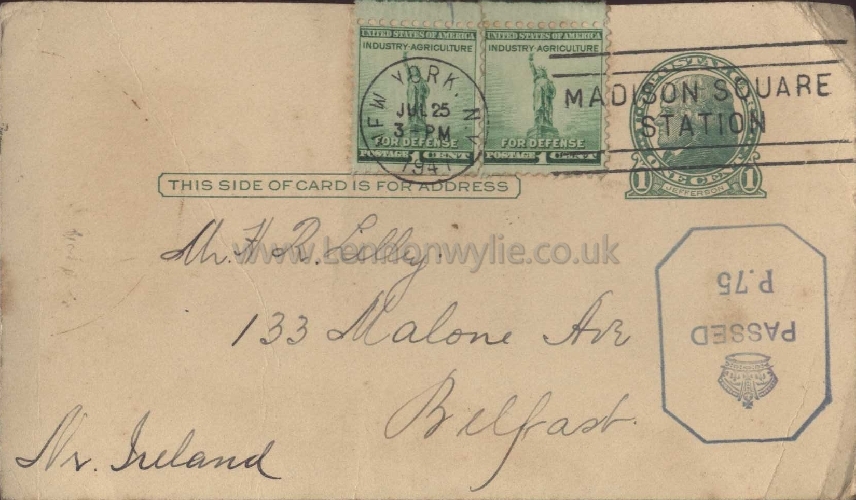 UNITED STATES OF AMERICA UNITED STATES OF AMERICA
INDUSTRY·AGRICULTURE INDUSTRY·AGRICULTURE
FOR DEFENSE FOR DEFENSE
POSTAGE 1 CENT POSTAGE 1 CENT
NEW YORK, N.Y.
JUL 25
3-PM
1941
MADISON SQUARE
STATION
U.S. POSTAGE
1 ONE CENT 1
JEFFERSON
THIS SIDE OF CARD IS FOR ADDRESS
Mr. H. R. Lilley.
www.Lennonwylie.co.uk
133 Malone Ave
Belfast.
Nr. Ireland
PASSED
P.75